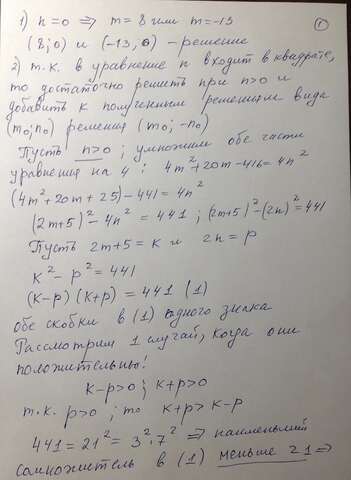 1
1) n=0 ⇒ m=8 или m=-13
(8;0) и (-13;0) - решение
2) т.к. в уравнение n входит в квадрате,
то достаточно решить при n>0 и
добавить к полученным решениям вида
(m₀;n₀) решения (m₀;-n₀)
Пусть n>0; умножим обе части
уравнения на 4: 4m²+20m-416=4n²
(4m²+20m+25)-441=4n²
(2m+5)²-4n²=441; (2m+5)²-(2n)²=441
Пусть 2m+5=k и 2n=p
k²-p²=441
(k-p)(k+p)=441 (1)
обе скобки в (1) одного знака
Рассмотрим 1 случай, когда они
положительны!
k-p>0; k+p>0
т.к. p>0; то k+p>k-p
441=21²=3²·7² ⇒ наименьший
сомножитель в (1) меньше 21 ⇒